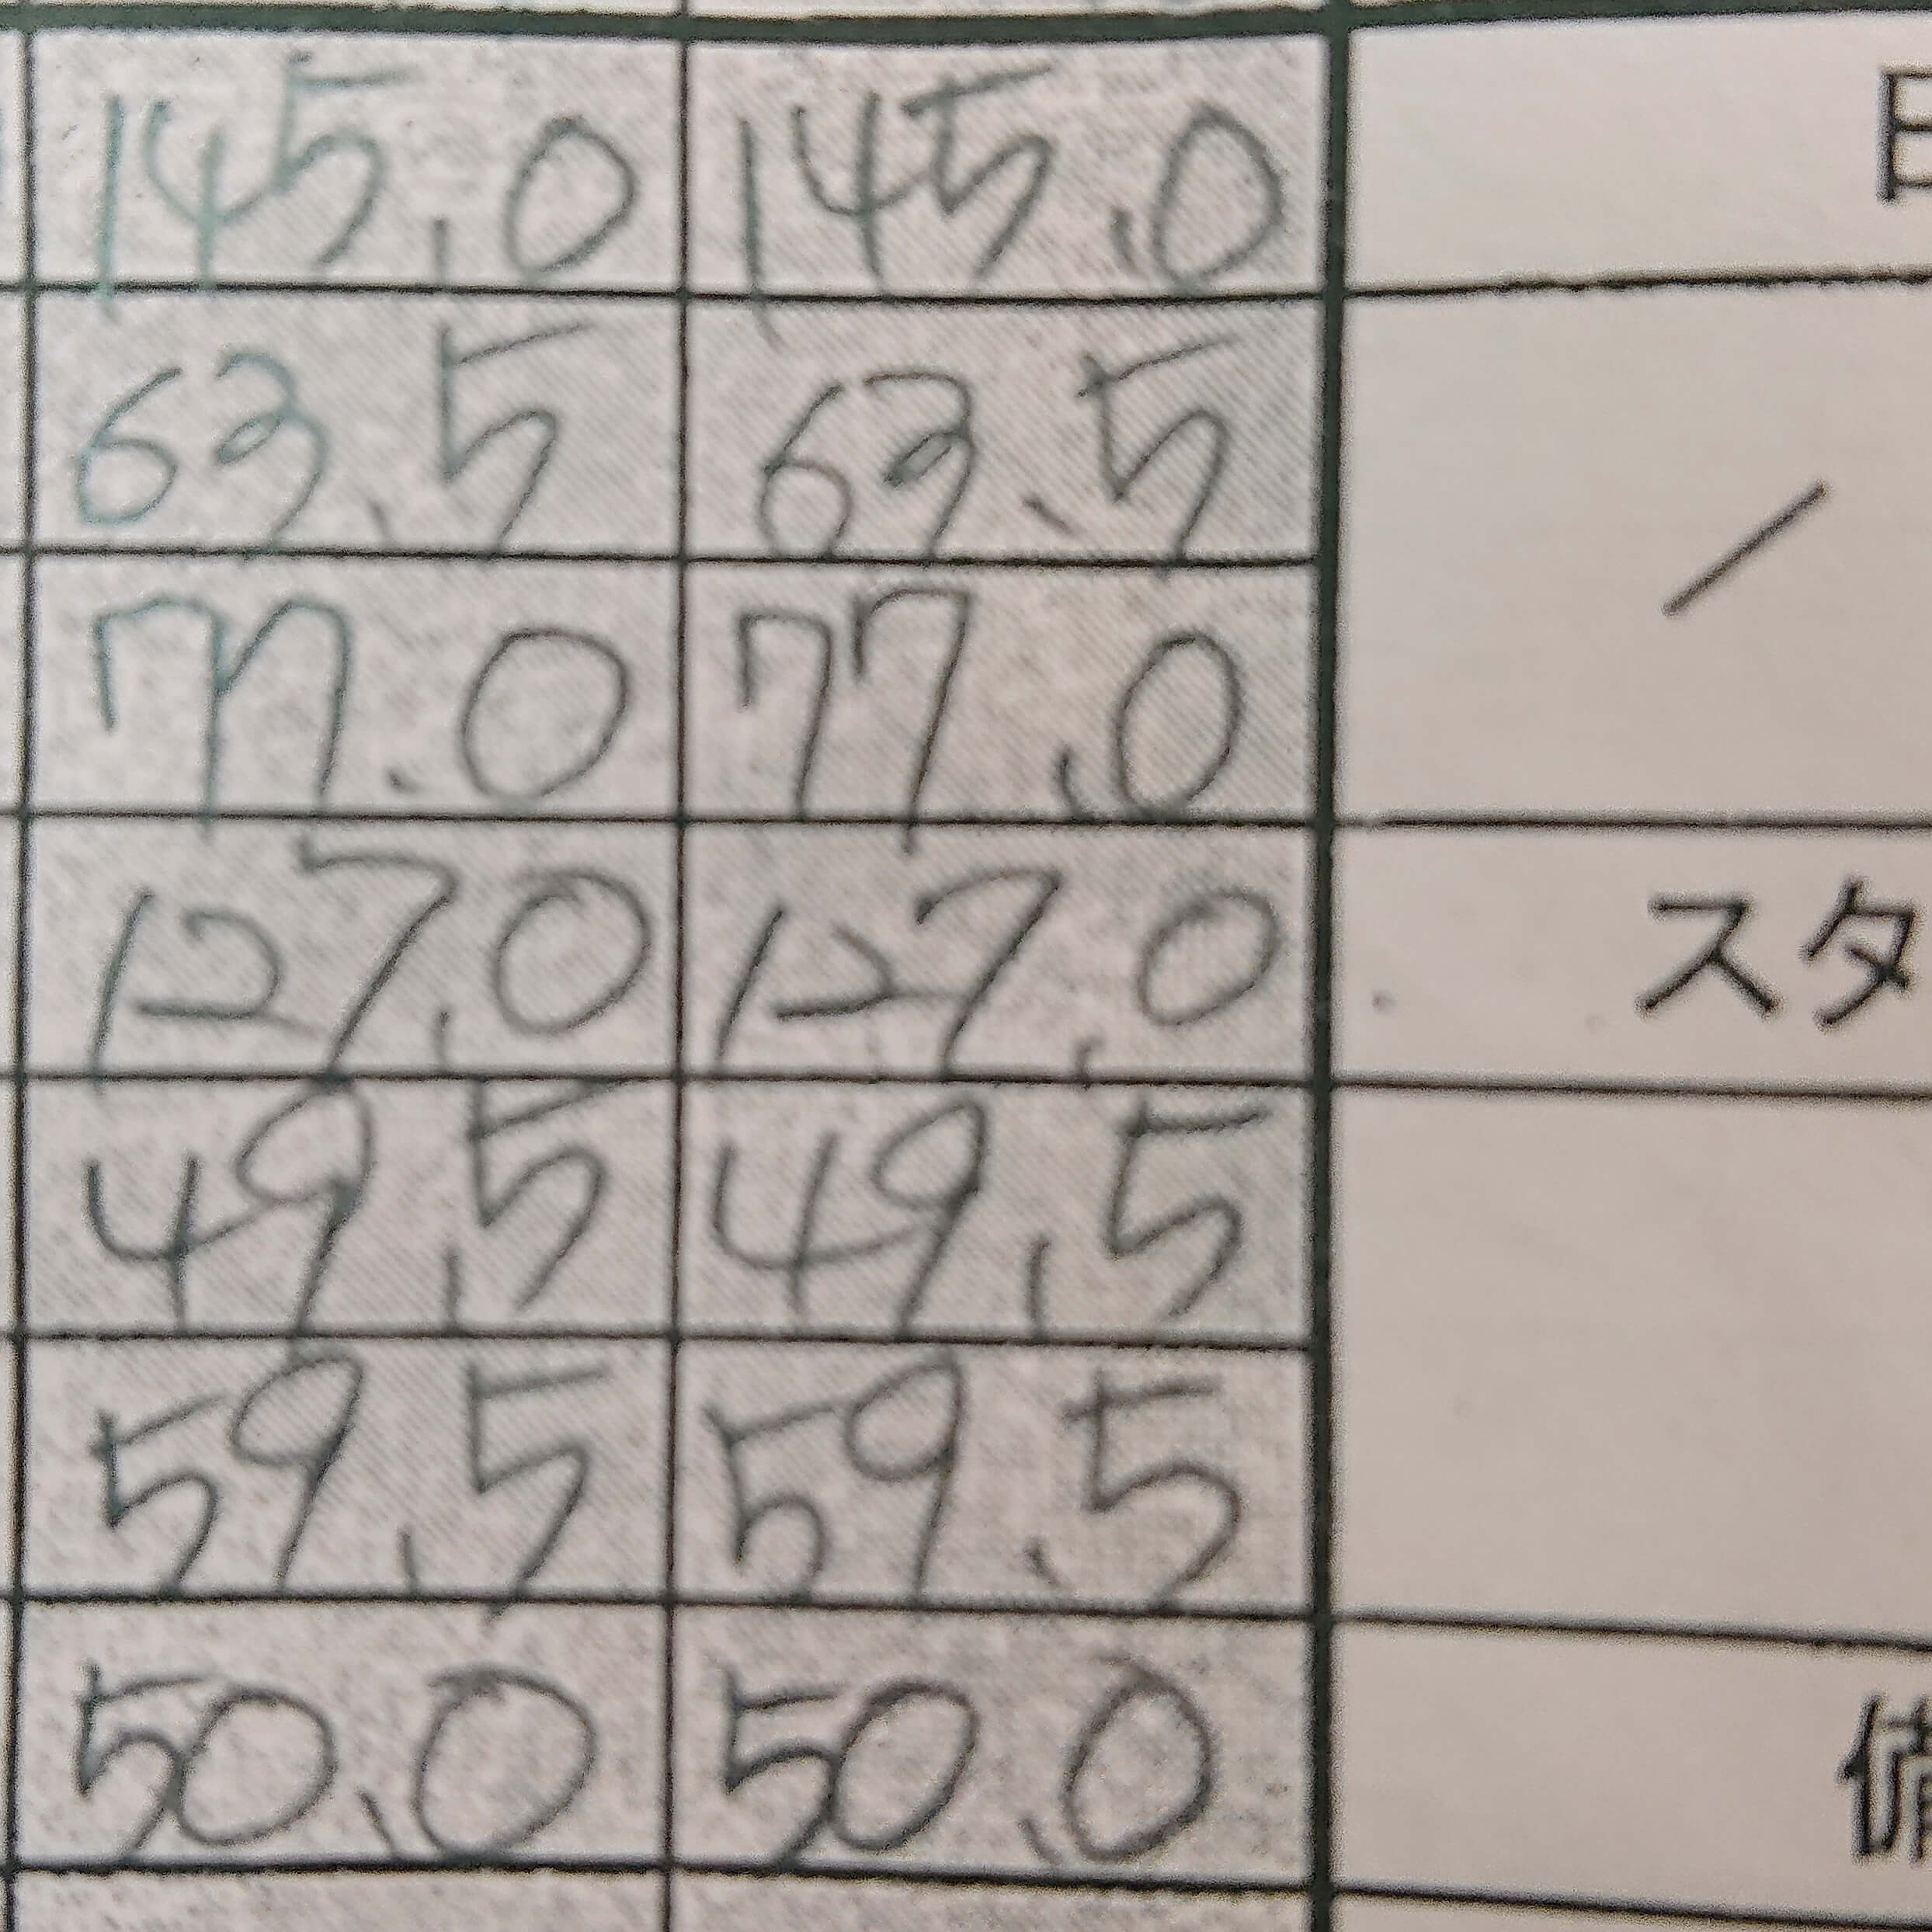 145.0 145.0 日
63.5 63.5
/
77.0 77.0
127.0 127.0 スタ
49.5 49.5
59.5 59.5
50.0 50.0 備